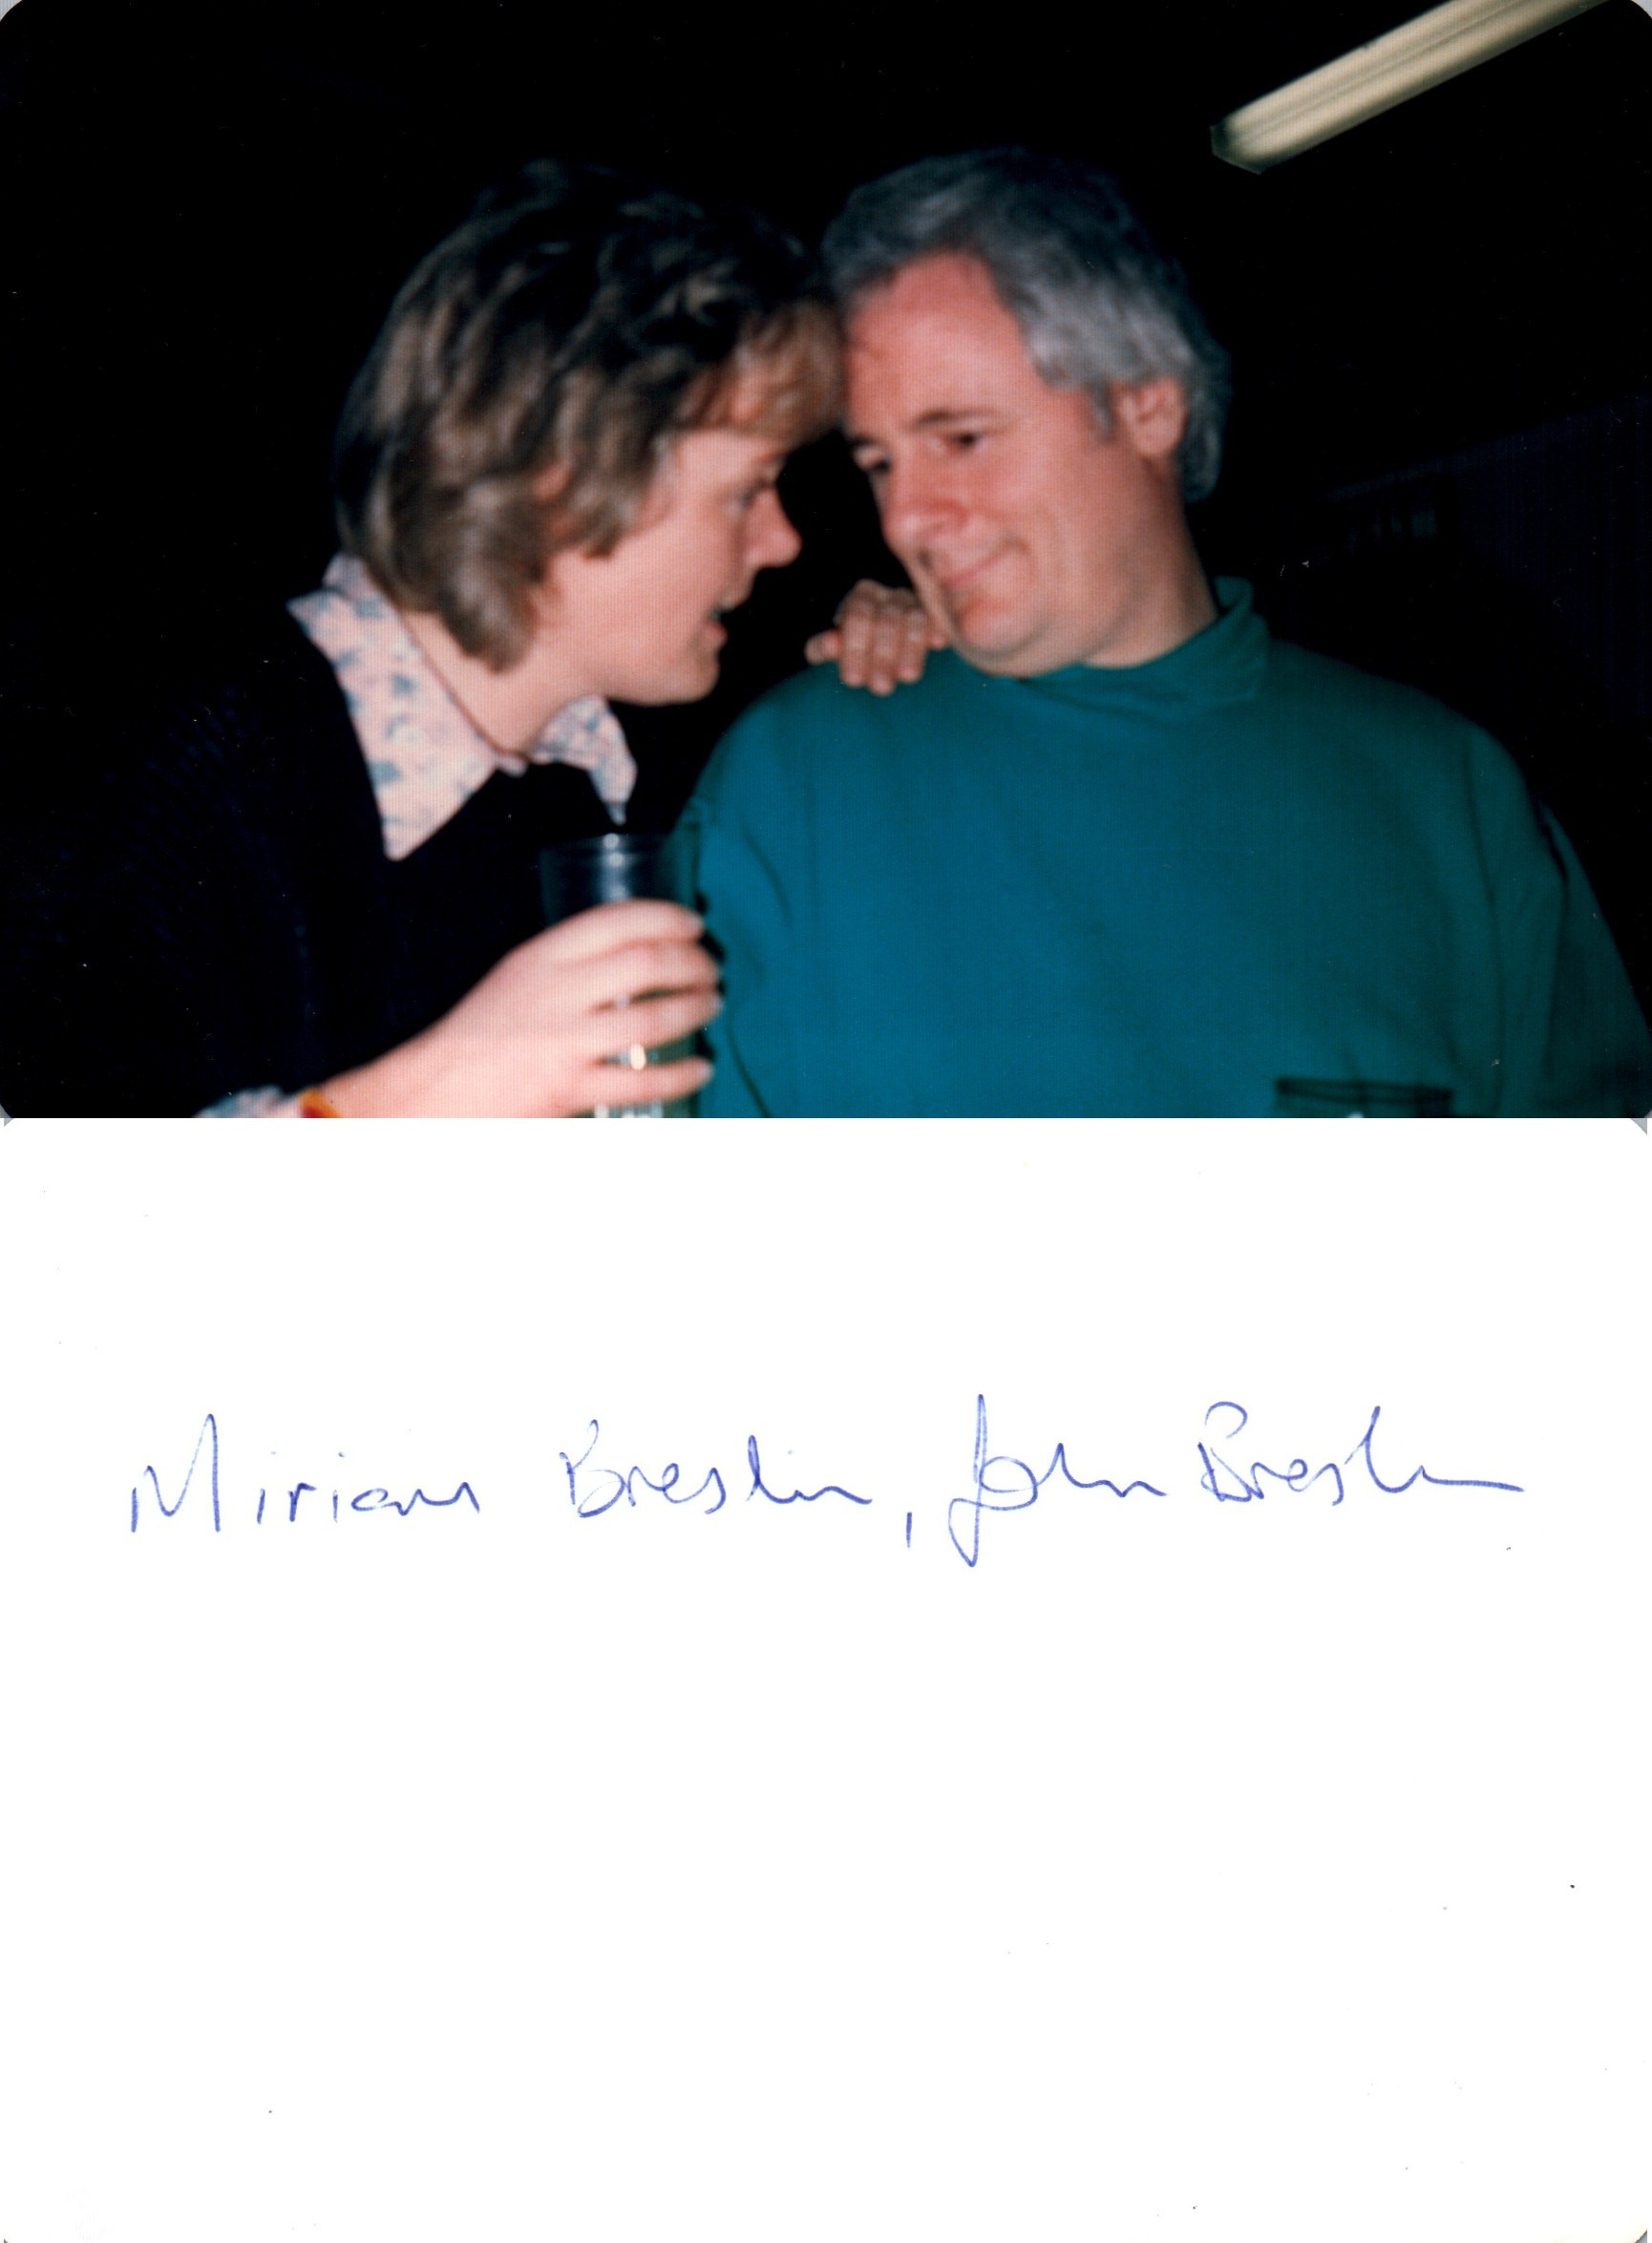 Miriam Breslin, John Breslin